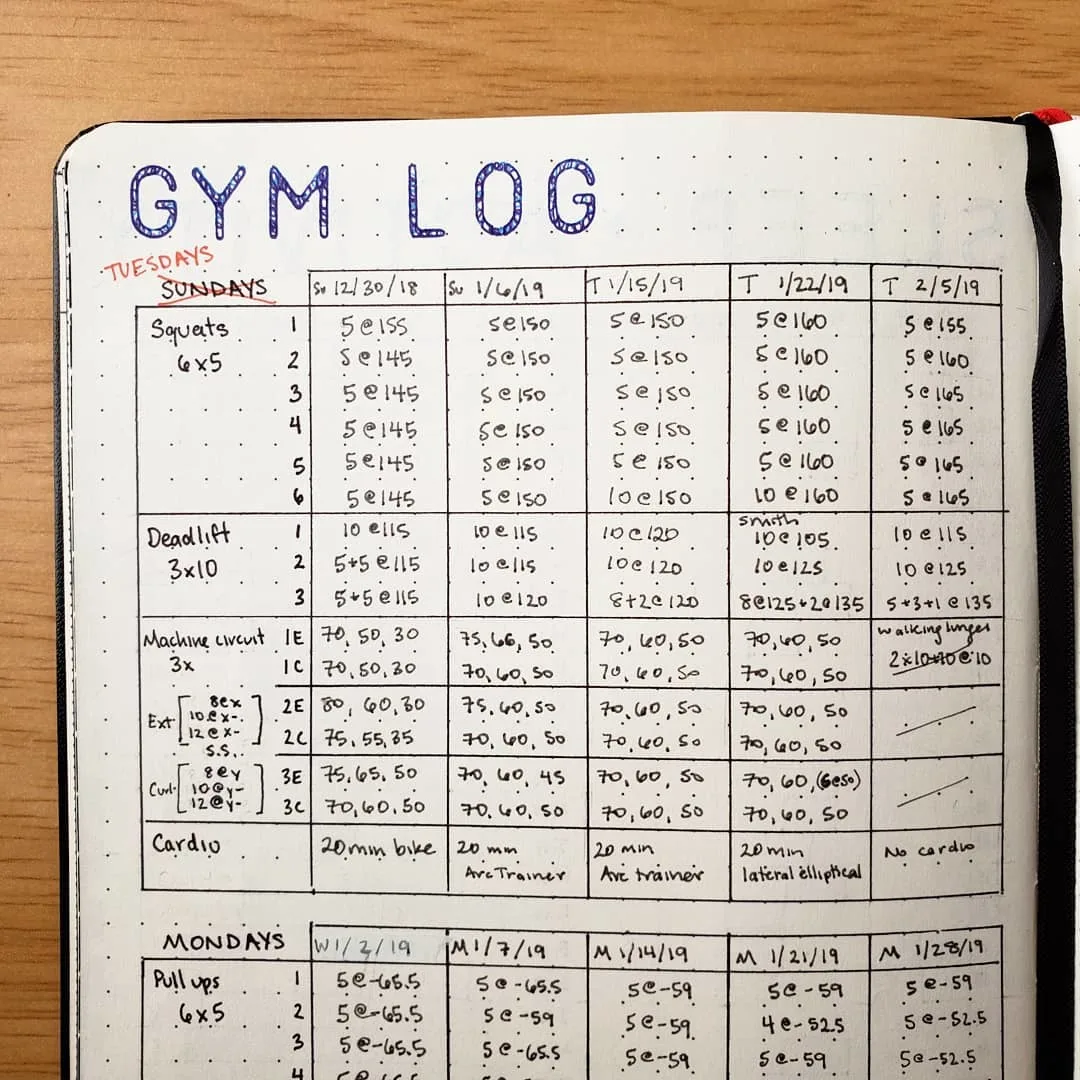 GYM LOG
TUESDAYS
SUNDAYS Su 12/30/18 Su 1/6/19 T 1/15/19 T 1/22/19 T 2/5/19
Squats 1 5@155 5@150 5@150 5@160 5@155
6x5 2 5@145 5@150 5@150 5@160 5@160
3 5@145 5@150 5@150 5@160 5@165
4 5@145 5@150 5@150 5@160 5@165
5 5@145 5@150 5@150 5@160 5@165
6 5@145 5@150 10@150 10@160 5@165
smith
Deadlift 1 10@115 10@115 10@120 10@105 10@115
3x10 2 5+5@115 10@115 10@120 10@125 10@125
3 5+5@115 10@120 8+2@120 8@125+2@135 5+3+1@135
Machine circuit 1E 70, 50, 30 75, 66, 50 70, 60, 50 70, 60, 50 walking lunges
3x 1C 70, 50, 30 70, 60, 50 70, 60, 50 70, 60, 50 2x10+10@10
Ext 8@x 2E 80, 60, 30 75, 60, 50 70, 60, 50 70, 60, 50
10@x-
12@x- 2C 75, 55, 35 70, 60, 50 70, 60, 50 70, 60, 50
S.S.
Curl 8@y 3E 75, 65, 50 70, 60, 45 70, 60, 50 70, 60, (6@50)
10@y-
12@y- 3C 70, 60, 50 70, 60, 50 70, 60, 50 70, 60, 50
Cardio 20 min bike 20 min 20 min 20 min No cardio
Arc Trainer Arc trainer lateral elliptical
MONDAYS W 1/2/19 M 1/7/19 M 1/14/19 M 1/21/19 M 1/28/19
Pull ups 1 5@-65.5 5@-65.5 5@-59 5@-59 5@-59
6x5 2 5@-65.5 5@-59 5@-59 4@-52.5 5@-52.5
3 5@-65.5 5@-65.5 5@-59 5@-59 5@-52.5
4